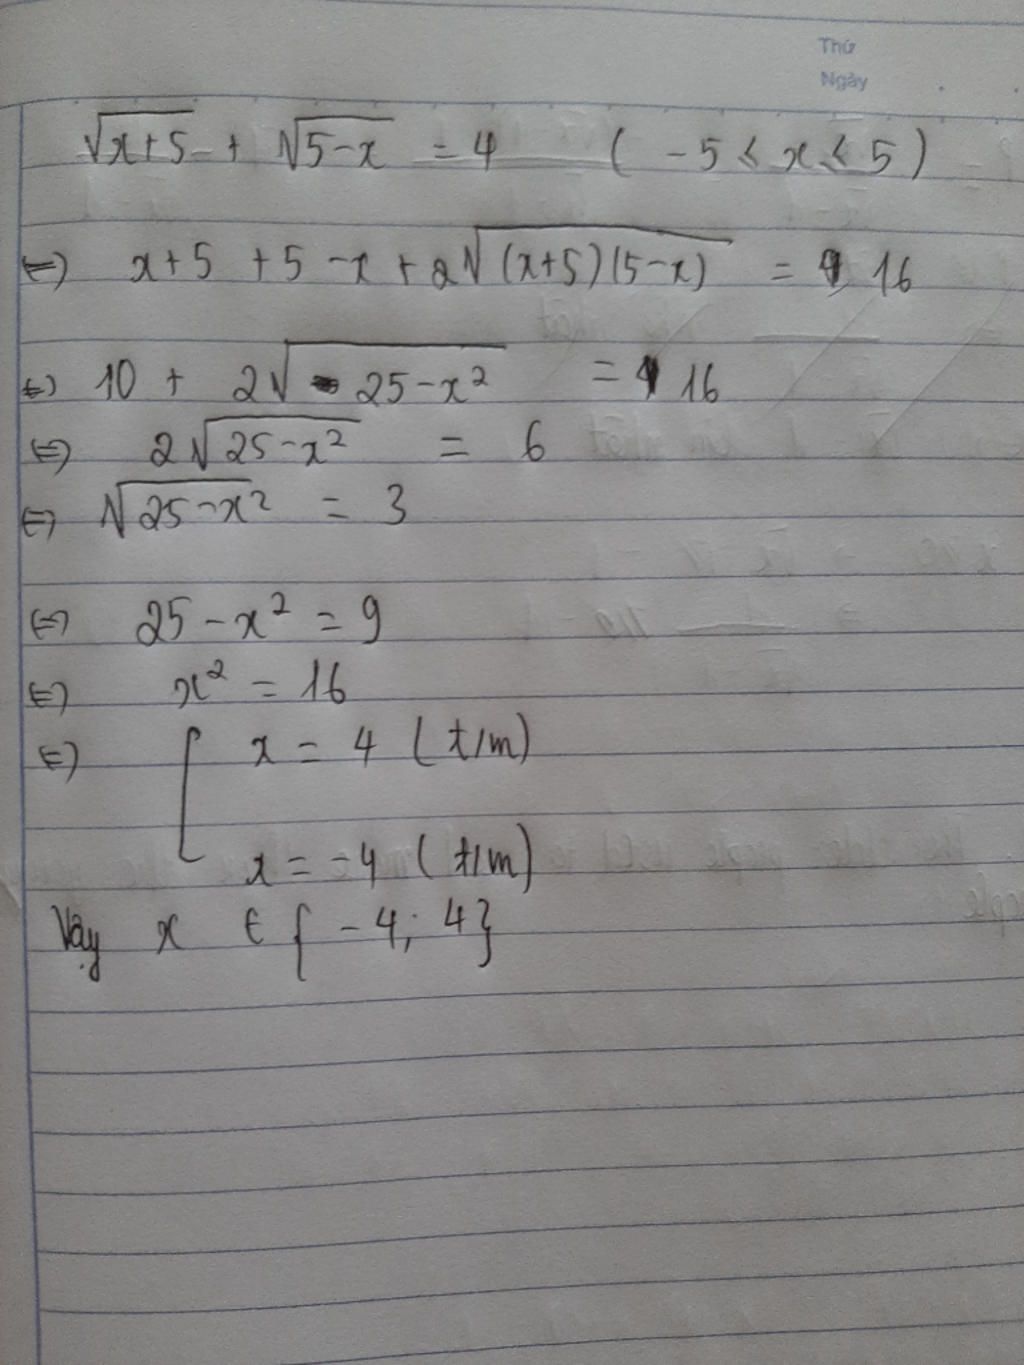 Thứ
Ngày
√(x+5) + √(5-x) = 4 ( -5 ≤ x ≤ 5 )
⇔ x+5 +5 -x + 2√((x+5)(5-x)) = 16
⇔ 10 + 2√(25-x²) = 16
⇔ 2√(25-x²) = 6
⇔ √(25-x²) = 3
⇔ 25-x² = 9
⇔ x² = 16
⇔ [ x = 4 ( t/m )
x = -4 ( t/m )
Vậy x ∈ { -4; 4 }